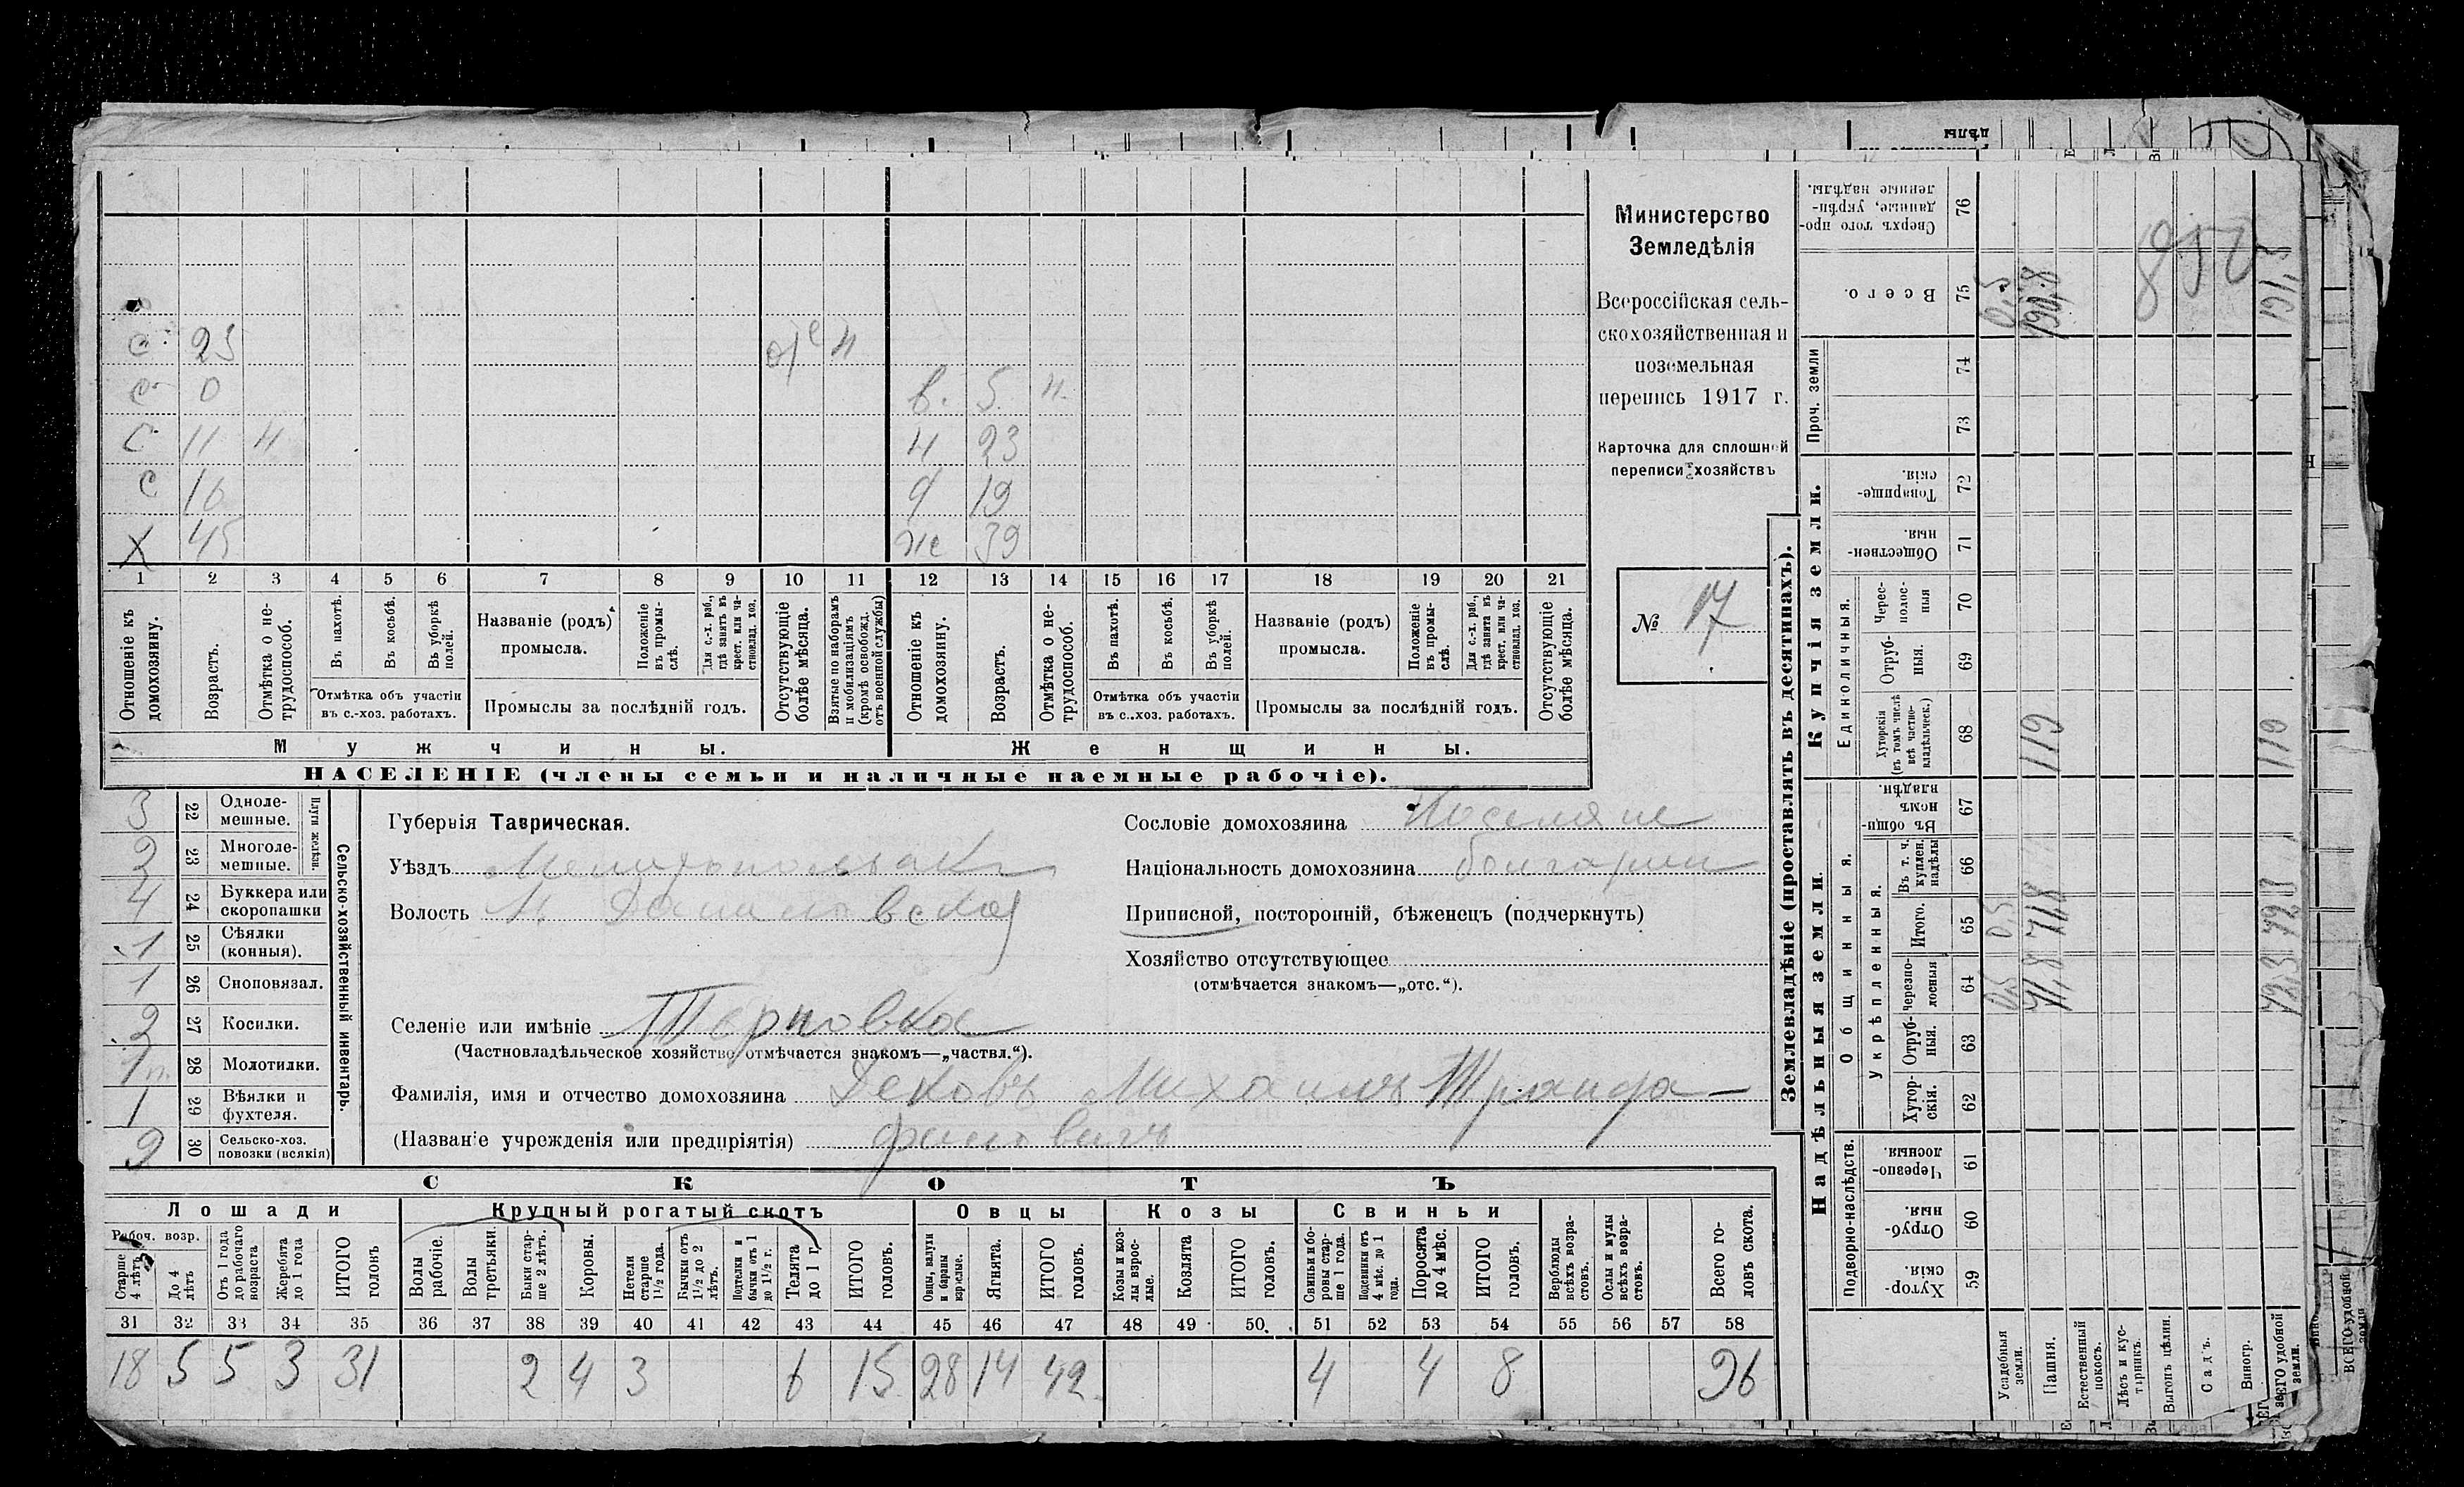 Министерство
Земледѣлія
Всероссійская сель-
скохозяйственная и
поземельная
перепись 1917 г.
Карточка для сплошной
переписи хозяйствъ
№ 17
с 23 н
с 0 в. 5 н.
с 11 н н 23
с 16 19
х 45 же 39
1 2 3 4 5 6 7 8 9 10 11 12 13 14 15 16 17 18 19 20 21
Отношеніе къ домохозяину.
Возрастъ.
Отмѣтка о не-трудоспособ.
Въ пахотѣ.
Въ косьбѣ.
Въ уборкѣ полей.
Отмѣтка объ участіи
въ с.-хоз. работахъ.
Названіе (родъ)
промысла.
Положеніе въ промы-слѣ.
Для с.-х. раб., гдѣ занятъ въ крест. или ча-стновлад. хоз.
Промыслы за послѣдній годъ.
Отсутствующіе болѣе мѣсяца.
Взятые по наборамъ и мобилизаціямъ (кромѣ освобожд. отъ военной службы)
Отношеніе къ домохозяину.
Возрастъ.
Отмѣтка о не-трудоспособ.
Въ пахотѣ.
Въ косьбѣ.
Въ уборкѣ полей.
Отмѣтка объ участіи
въ с.-хоз. работахъ.
Названіе (родъ)
промысла.
Положеніе въ промы-слѣ.
Для с.-х. раб., гдѣ занята въ крест. или ча-стновлад. хоз.
Промыслы за послѣдній годъ.
Отсутствующіе болѣе мѣсяца.
Мужчины. Женщины.
НАСЕЛЕНІЕ (члены семьи и наличные наемные рабочіе).
3 22 Одноле-мешные.
2 23 Многоле-мешные.
Плуги желѣзн.
4 24 Буккера или скоропашки
1 25 Сѣялки (конныя).
1 26 Сноповязал.
2 27 Косилки.
1 п. 28 Молотилки.
1 29 Вѣялки и фухтеля.
9 30 Сельско-хоз. повозки (всякія)
Сельско-хозяйственный инвентарь.
Губернія Таврическая.
Уѣздъ Мелитопольскій
Волость Н. Даниловская
Селеніе или имѣніе Терновка
(Частновладѣльческое хозяйство отмѣчается знакомъ—„частвл.“).
Фамилія, имя и отчество домохозяина Дековъ Михаилъ Трандa-
(Названіе учрежденія или предпріятія) филовичъ
Сословіе домохозяина Поселяне
Національность домохозяина болгарин
Приписной, посторонній, бѣженецъ (подчеркнуть)
Хозяйство отсутствующее
(отмѣчается знакомъ—„отс.“).
СКОТЪ
Лошади Крупный рогатый скотъ Овцы Козы Свиньи
Рабоч. возр.
Старше 4 лѣтъ
До 4 лѣтъ
Отъ 1 года до рабочаго возраста
Жеребята до 1 года
ИТОГО головъ
Волы рабочіе.
Волы третьяки.
Быки стар-ше 2 лѣтъ.
Коровы.
Нетели старше 1½ года.
Бычки отъ 1½ до 2 лѣтъ.
Подтелки и бычки отъ 1 до 1½ г.
Телята до 1 г.
ИТОГО головъ.
Овцы, валухи и бараны взрослые.
Ягнята.
ИТОГО головъ.
Козы и коз-лы взрос-лые.
Козлята
ИТОГО головъ.
Свиньи и бо-ровы стар-ше 1 года.
Подсвинки отъ 4 мѣс. до 1 года.
Поросята до 4 мѣс.
ИТОГО головъ.
Верблюды всѣхъ возра-стовъ.
Ослы и мулы всѣхъ возра-стовъ.
Всего го-ловъ скота.
31 32 33 34 35 36 37 38 39 40 41 42 43 44 45 46 47 48 49 50. 51 52 53 54 55 56 57 58
18 5 5 3 31 2 4 3 6 15 28 14 42 4 4 8 96
Землевладѣніе (проставлять въ десятинахъ).
Надѣльныя земли. Купчія земли. Проч. земли
Подворно-наслѣдств.
Общинныя.
Укрѣпленныя.
Единоличныя.
59 Хутор-скія.
60 Отруб-ныя.
61 Черезпо-лосныя.
62 Хутор-скія.
63 Отруб-ныя.
64 Черезпо-лосныя 0,5 71,8 72,3
65 Итого. 0,5 71,8 72,3
66 Въ т. ч. куплен. надѣлы
67 Въ общи-номъ владѣн.
68 Хуторскія (въ томъ числѣ всѣ частно-владѣльческ.) 119 119
69 Отруб-ныя.
70 Черес-полос-ныя
71 Обществен-ныя.
72 Товарище-скія.
73
74
75 Всего. 0,5 190,8 191,3
76 Сверхъ того про-данные, укрѣп-ленные надѣлы.
850
Усадебныя земли.
Пашня.
Естественный покосъ.
Лѣсъ и кус-тарникъ.
Выгонъ цѣлин.
Садъ.
Виногр.
ВСЕГО удобной земли.
ВСЕГО удобной земли